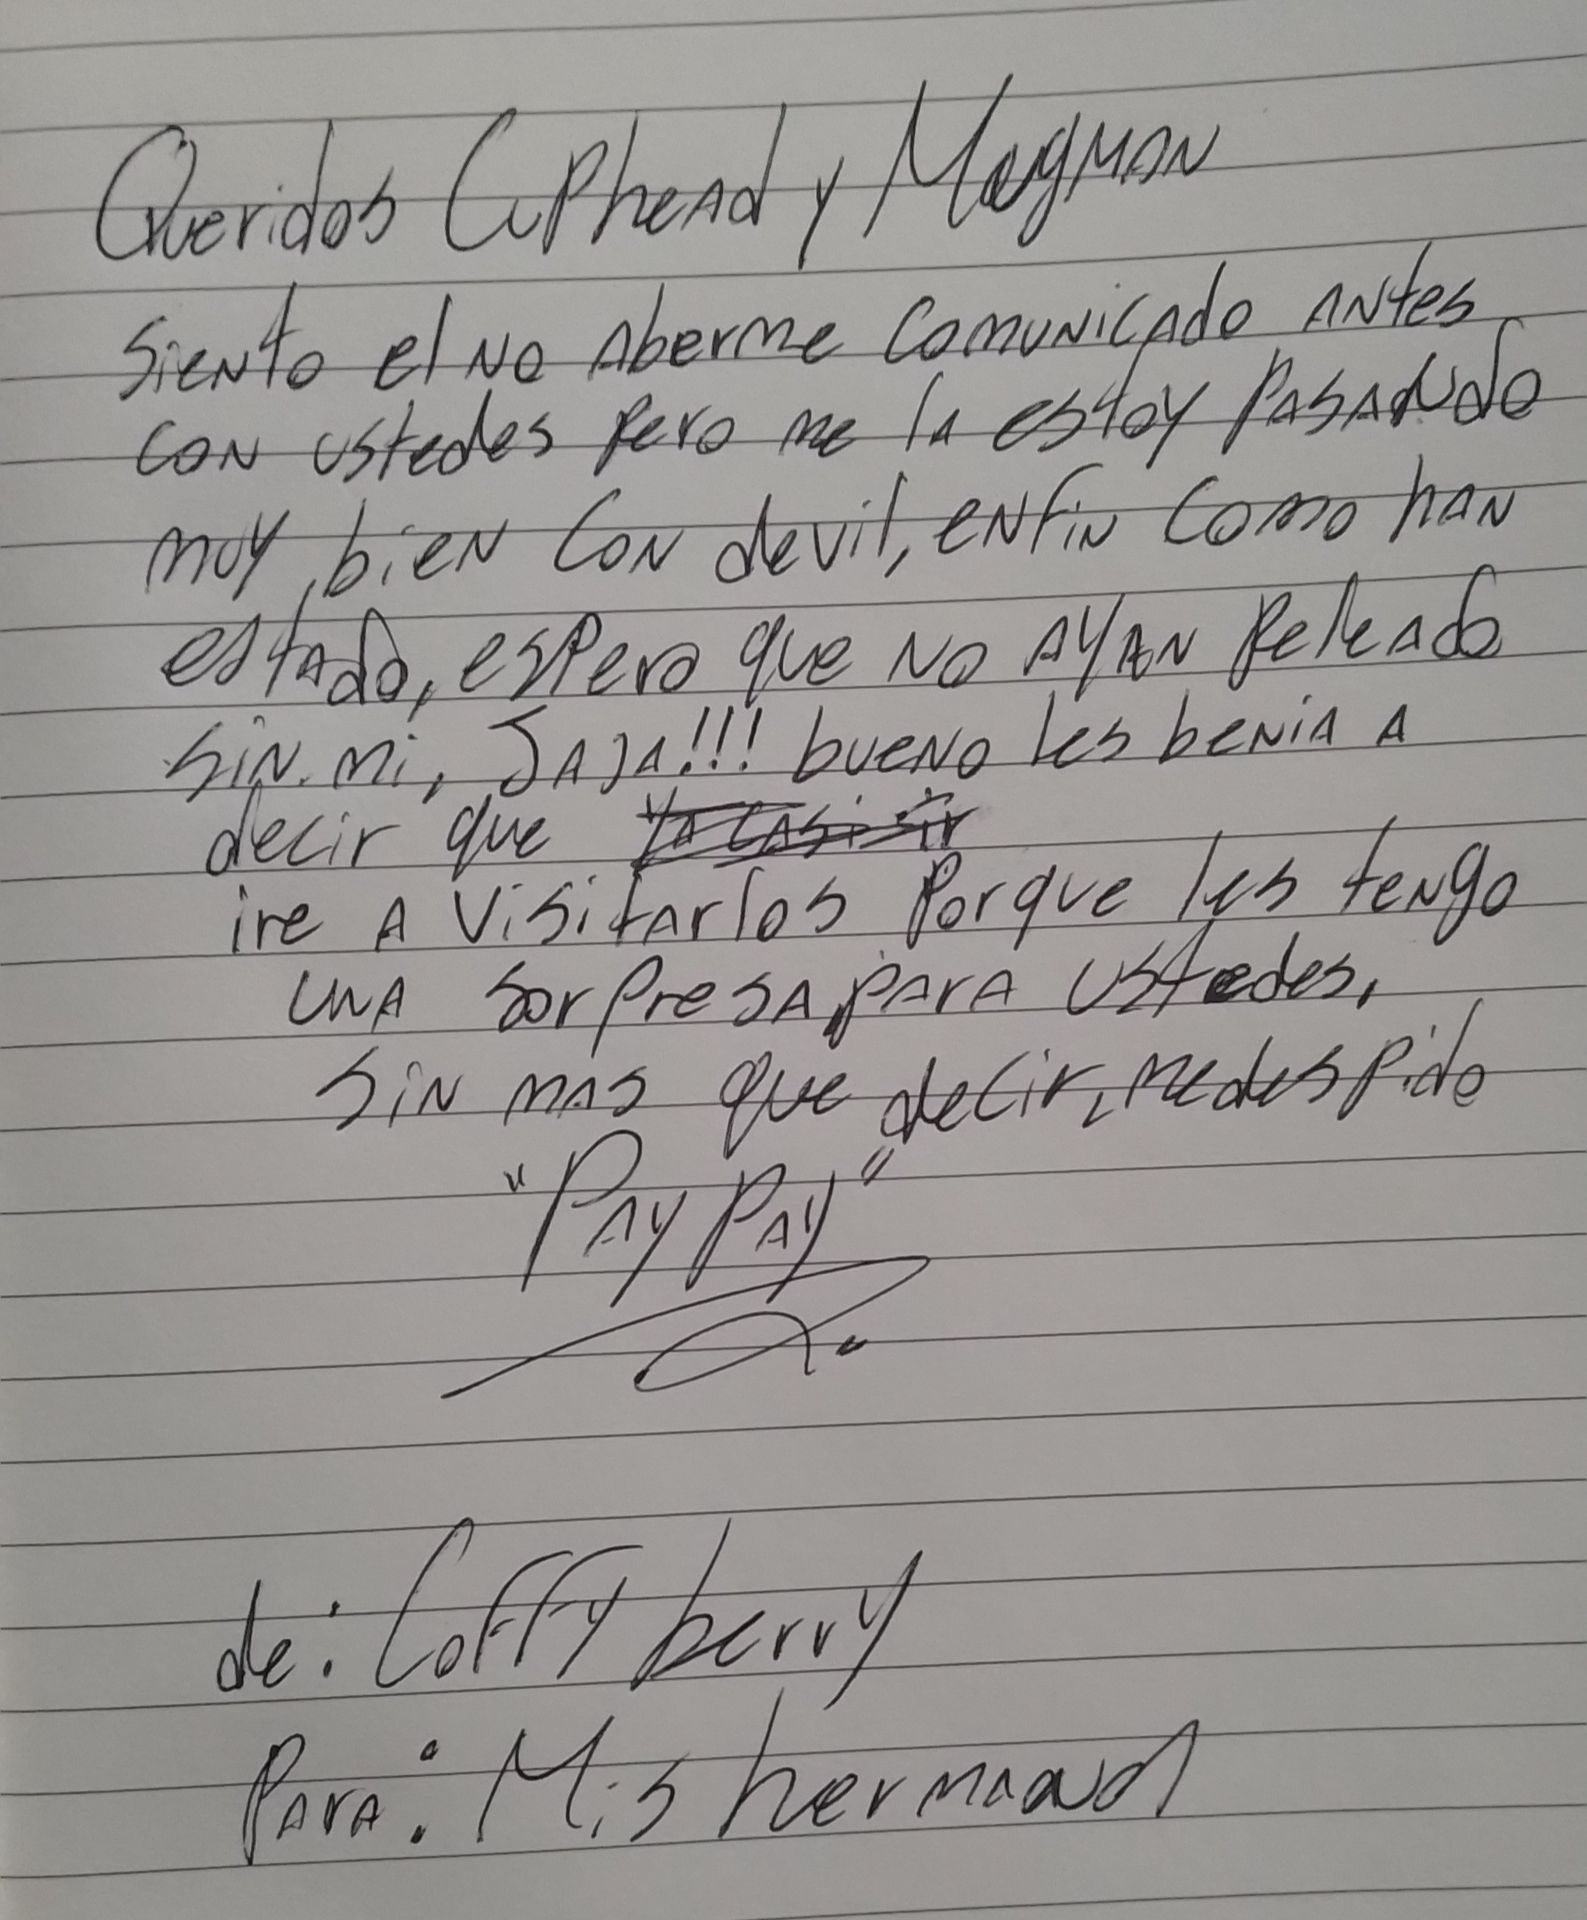 Queridos Cuphead y Mugman
siento el no aberme comunicado antes
con ustedes pero me la estoy pasando
muy bien con devil, enfin como han
estado, espero que no ayan peleado
sin mi, JAJA!!! bueno les benia a
decir que
ire a visitarlos porque les tengo
una sorpresa, para ustedes,
sin mas que decir, me despido
"Pay Pay"
de: Coffy berry
Para: Mis